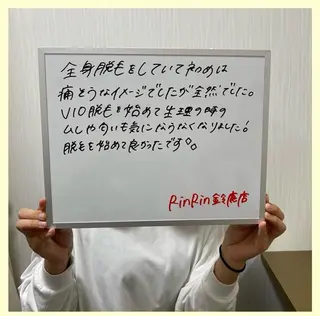 全身脱毛をしていて初めは
痛そうなイメージでしたが全然でした。
VIO脱毛を始めて生理の時の
ムレや匂いも気にならなくなりました!
脱毛を始めて良かったです。
RinRin鈴鹿店